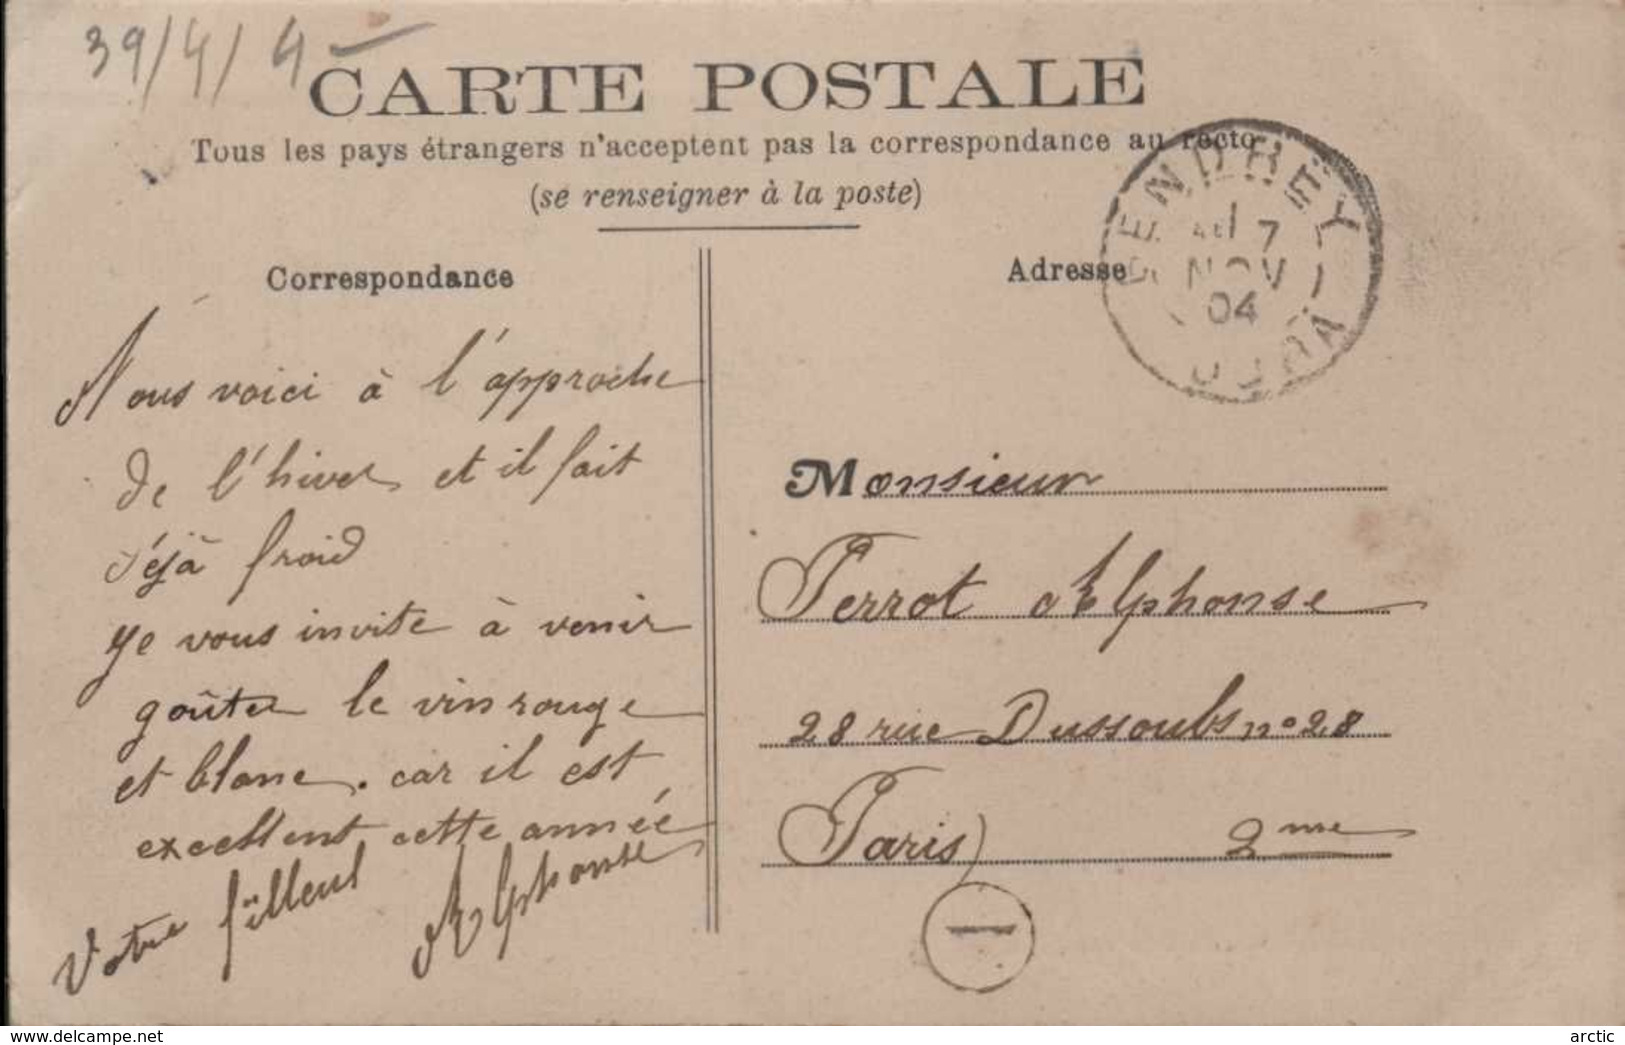 39/4/4
CARTE POSTALE
Tous les pays étrangers n'acceptent pas la correspondance au recto
(se renseigner à la poste)
Correspondance
Nous voici à l'approche
de l'hiver et il fait
déjà froid
Je vous invite à venir
goûter le vin rouge
et blanc. car il est
excellent cette année
Votre filleul Alphonse
Adresse
GENDREY
7
NOV
04
JURA
Monsieur
Perrot Alphonse
28 rue Dussoubs n° 28
Paris) 2me
I
delcampe.net
arctic